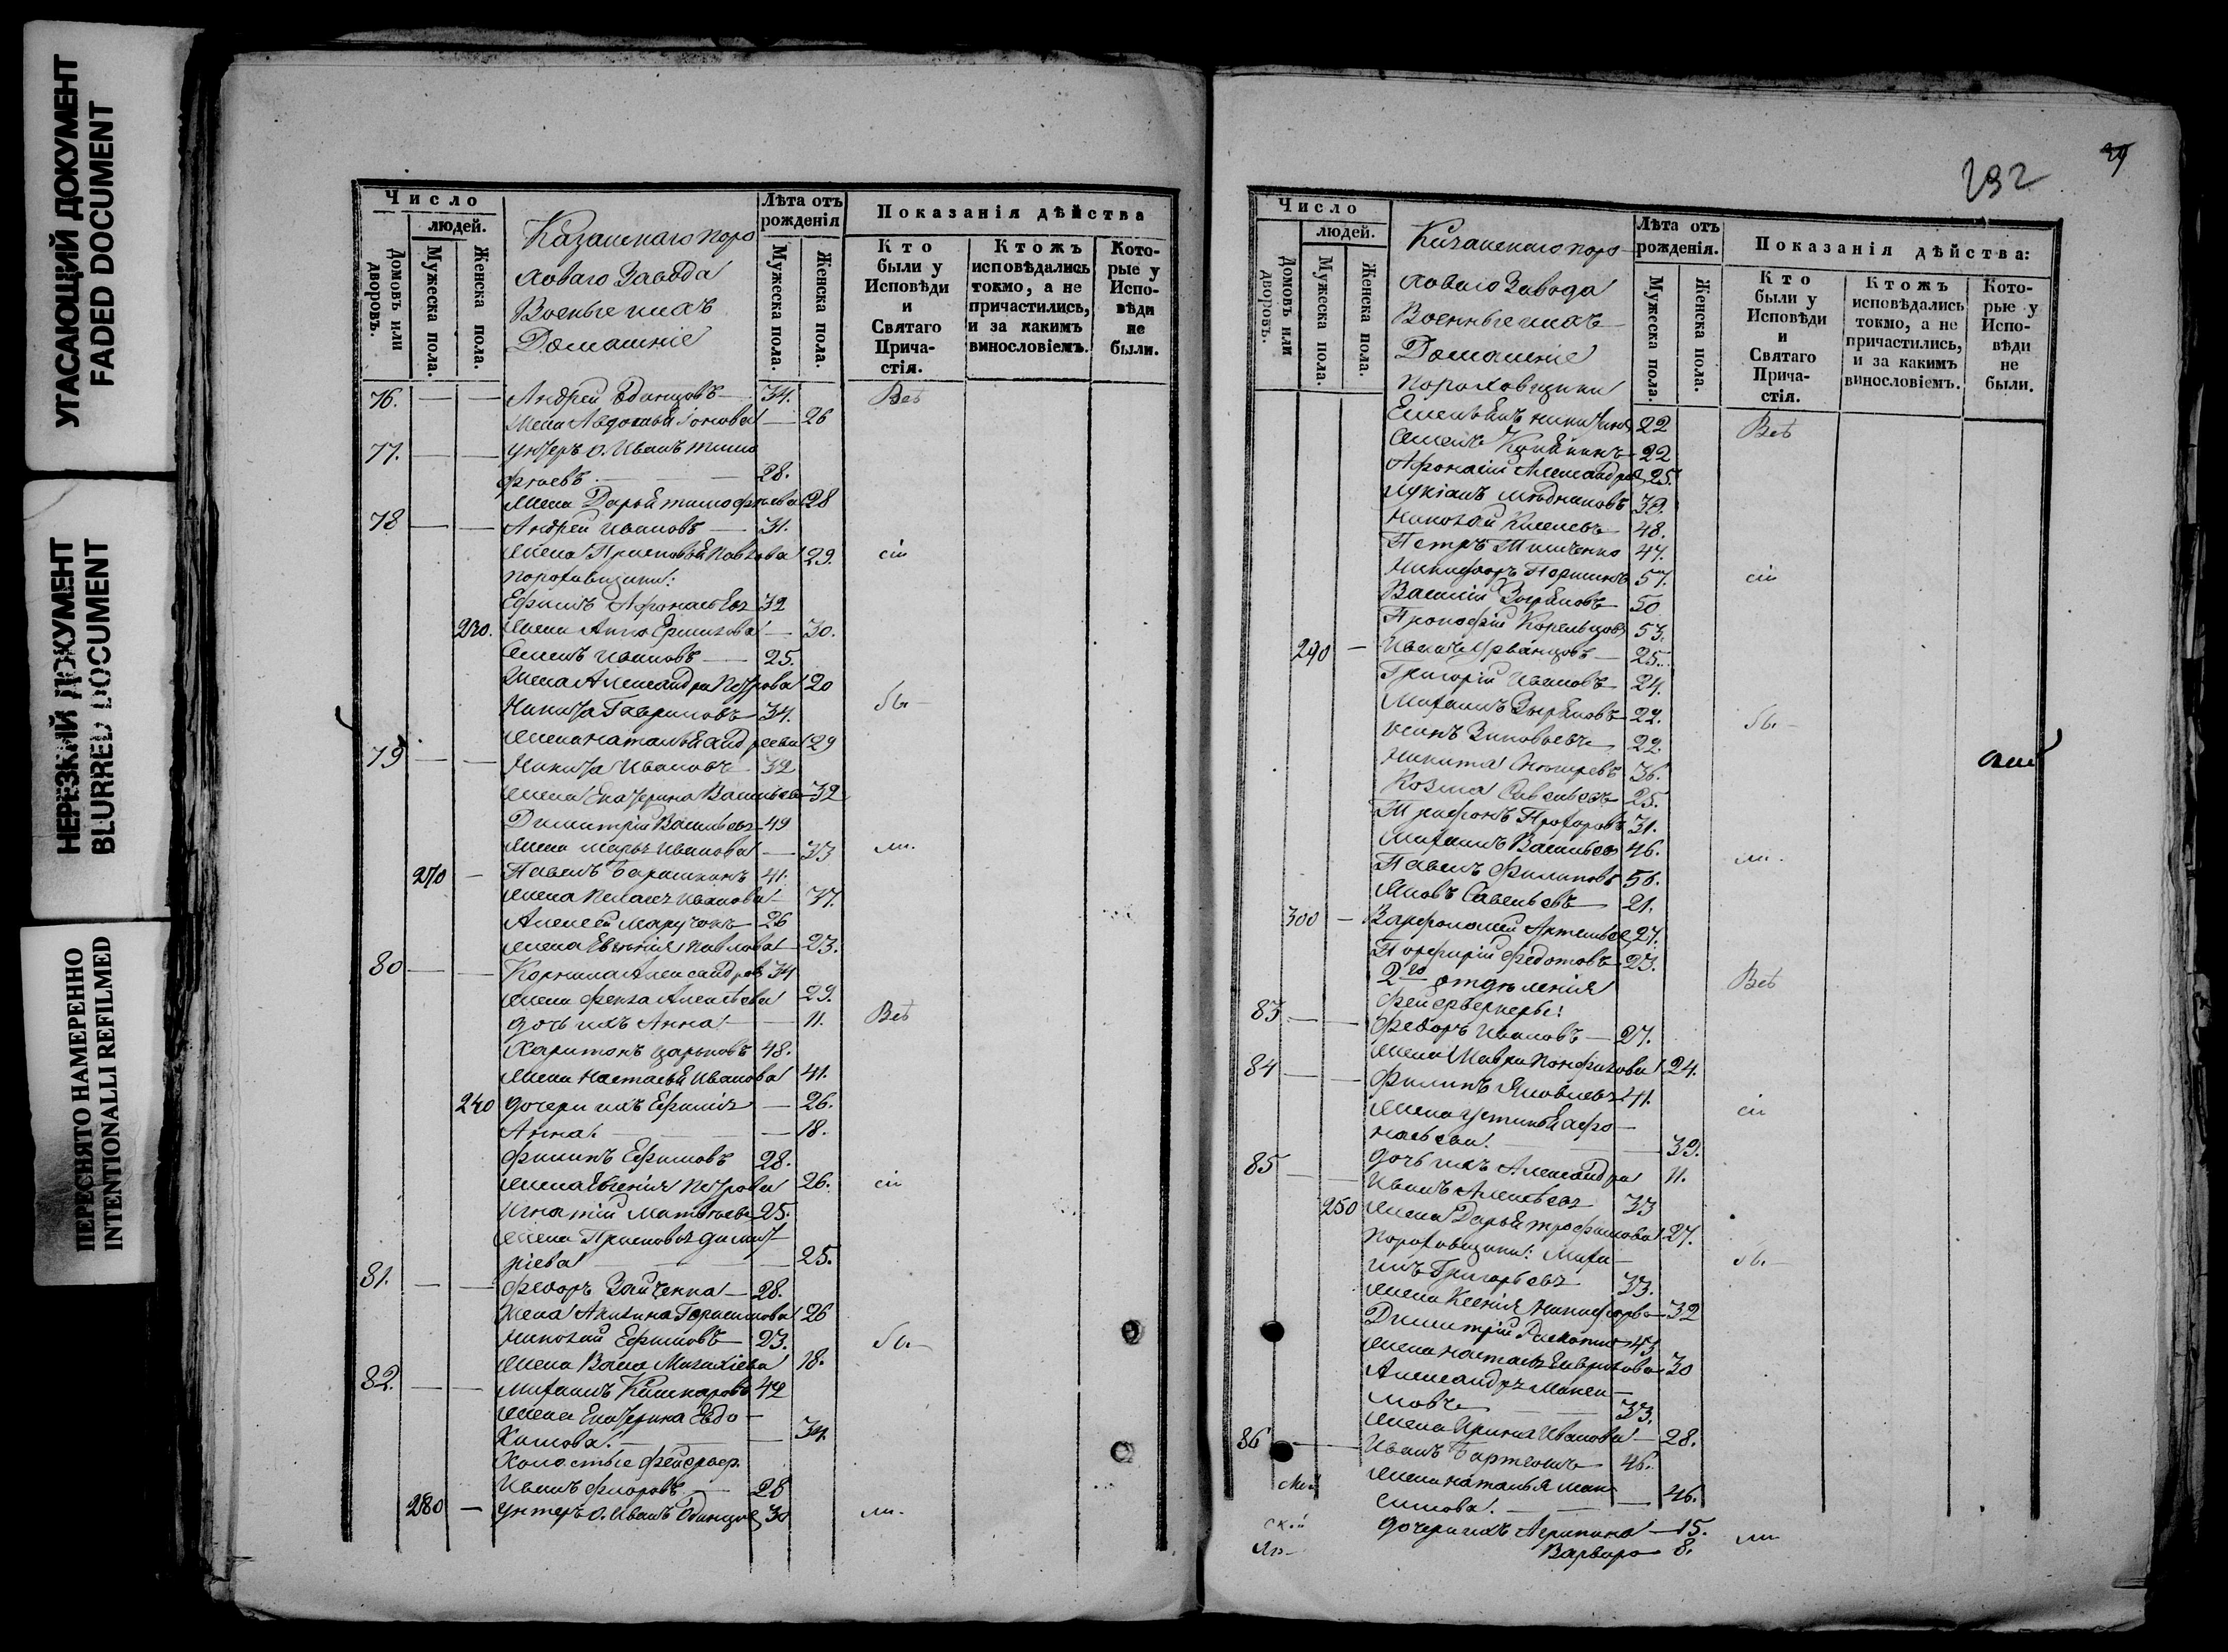 УГАСАЮЩИЙ ДОКУМЕНТ
FADED DOCUMENT
НЕРЕЗКИЙ ДОКУМЕНТ
BLURRED DOCUMENT
ПЕРЕСНЯТО НАМЕРЕННО
INTENTIONALLI REFILMED
Число
людей.
Домовъ или дворовъ.
Мужеска пола.
Женска пола.
Казанскаго поро
ховаго Завода
Военные ихъ
Домашніе
Лѣта отъ рожденія
Мужеска пола.
Женска пола.
Показанія дѣйства
Кто были у Исповѣди и Святаго Прича-стія.
Ктожъ исповѣдались токмо, а не причастились, и за какимъ винословіемъ.
Кото-рые у Испо-вѣди не были.
76. — — Андрей Одинцовъ — 34. Всѣ
жена Авдотья — 26
77. — — Унтеръ о. Иванъ Тимо
фѣевъ — 28.
жена Дарья Тимофѣева 28
78 — — Андрей Ивановъ — 31.
жена Прасковья Павлова 29. сіи
Пороховщики:
Ефимъ Афонасьевъ 32
230. жена Анна — 30.
Семенъ Ивановъ — 25.
жена Александра Петрова 20
Никита Гавриловъ — 34. бы-
жена Наталья Андреева 29
79 — — Никита Ивановъ 32
жена Екатерина Васильева 32
Димитрій Васильевъ 49
жена Марья Иванова — 33 ли.
270 — Павелъ Барашкинъ 41.
жена Пелагея Иванова — 37.
Алексѣй 26
жена Евгенія Павлова — 23.
80 — — Корнила Александровъ 34
жена Фекла Алексѣева 29.
дочь ихъ Анна — 11. Всѣ
Харитонъ Царьковъ 48.
жена Настасья Иванова 41.
240 дочери ихъ Ефимія — 26.
Анна. — 18.
Филипъ Ефимовъ 28.
жена Евгенія Петрова 26. сіи
Игнатій Матвѣевъ 25.
жена Прасковья Димит
ріева — 25.
81. — — Федоръ Зайченка — 28.
жена Акилина Герасимова 26
Николай Ефимовъ — 23. бы-
жена 18.
82. — — Михаилъ 42
жена Екатерина Евдо-
кимова. — 34.
Холостые фейервер.
Иванъ Флоровъ — 28
280 — Унтеръ о. Иванъ Одинцовъ 30 ли.
292
Число
людей.
Домовъ или дворовъ.
Мужеска пола.
Женска пола.
Казанскаго поро-
ховаго Завода
Военные ихъ
Домашніе
Лѣта отъ рожденія.
Мужеска пола.
Женска пола.
Показанія дѣйства:
Кто были у Исповѣди и Святаго Прича-стія.
Ктожъ исповѣдались токмо, а не причастились, и за какимъ винословіемъ.
Кото-рые у Испо-вѣди не были.
Пороховщики
Емельянъ Никитинъ 22 Всѣ
Семенъ 22
Афонасій Александровъ 25.
Лукіанъ 32.
Николай Киселевъ — 48.
Петръ Тимченко 47.
Никифоръ Паршинъ 57. сіи
Василій Зыряновъ — 50
Прокофій Корельцовъ 53.
290 — Иванъ 25.
Григорій Ивановъ — 24.
Михаилъ Зыряновъ — 22. бы-
Зиновьевъ 22.
Никита 36.
Козма Савельевъ — 25.
Трифонъ Прохоровъ 31.
Михаилъ Васильевъ 46.
Павелъ Филиповъ 56. ли.
Яковъ Савельевъ 21.
300 — Варфоломей 27.
Порфирій Федотовъ — 23.
2го отдѣленія Всѣ
Фейерверкеры:
83. — — Федоръ Ивановъ — 27.
жена Мавра 24.
84 — — Филипъ Яковлевъ 41.
жена Устинья Афо- сіи
насьева. — 39.
дочь ихъ Александра 11.
85 — — Иванъ Алексѣевъ 33
250 жена Дарья Трофимова 27.
Пороховщики: Миха-
илъ Григорьевъ 33. бы-
жена Ксенія Никифорова 32
Димитрій 43
жена Настасья 30
Александръ Макси-
мовъ — 33.
жена Ирина Иванова — 28.
86 — — Иванъ 46.
жена Наталья Мак
симова. — 46.
дочери ихъ Агрипина — 15. ли
Варвара 8.